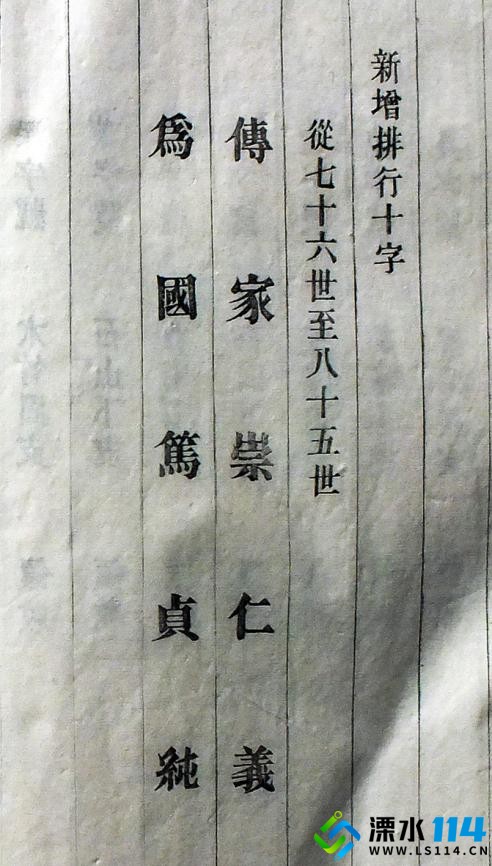 新增排行十字
從七十六世至八十五世
傳家崇仁義
爲國篤貞純
溧水114
WWW.LS114.CN